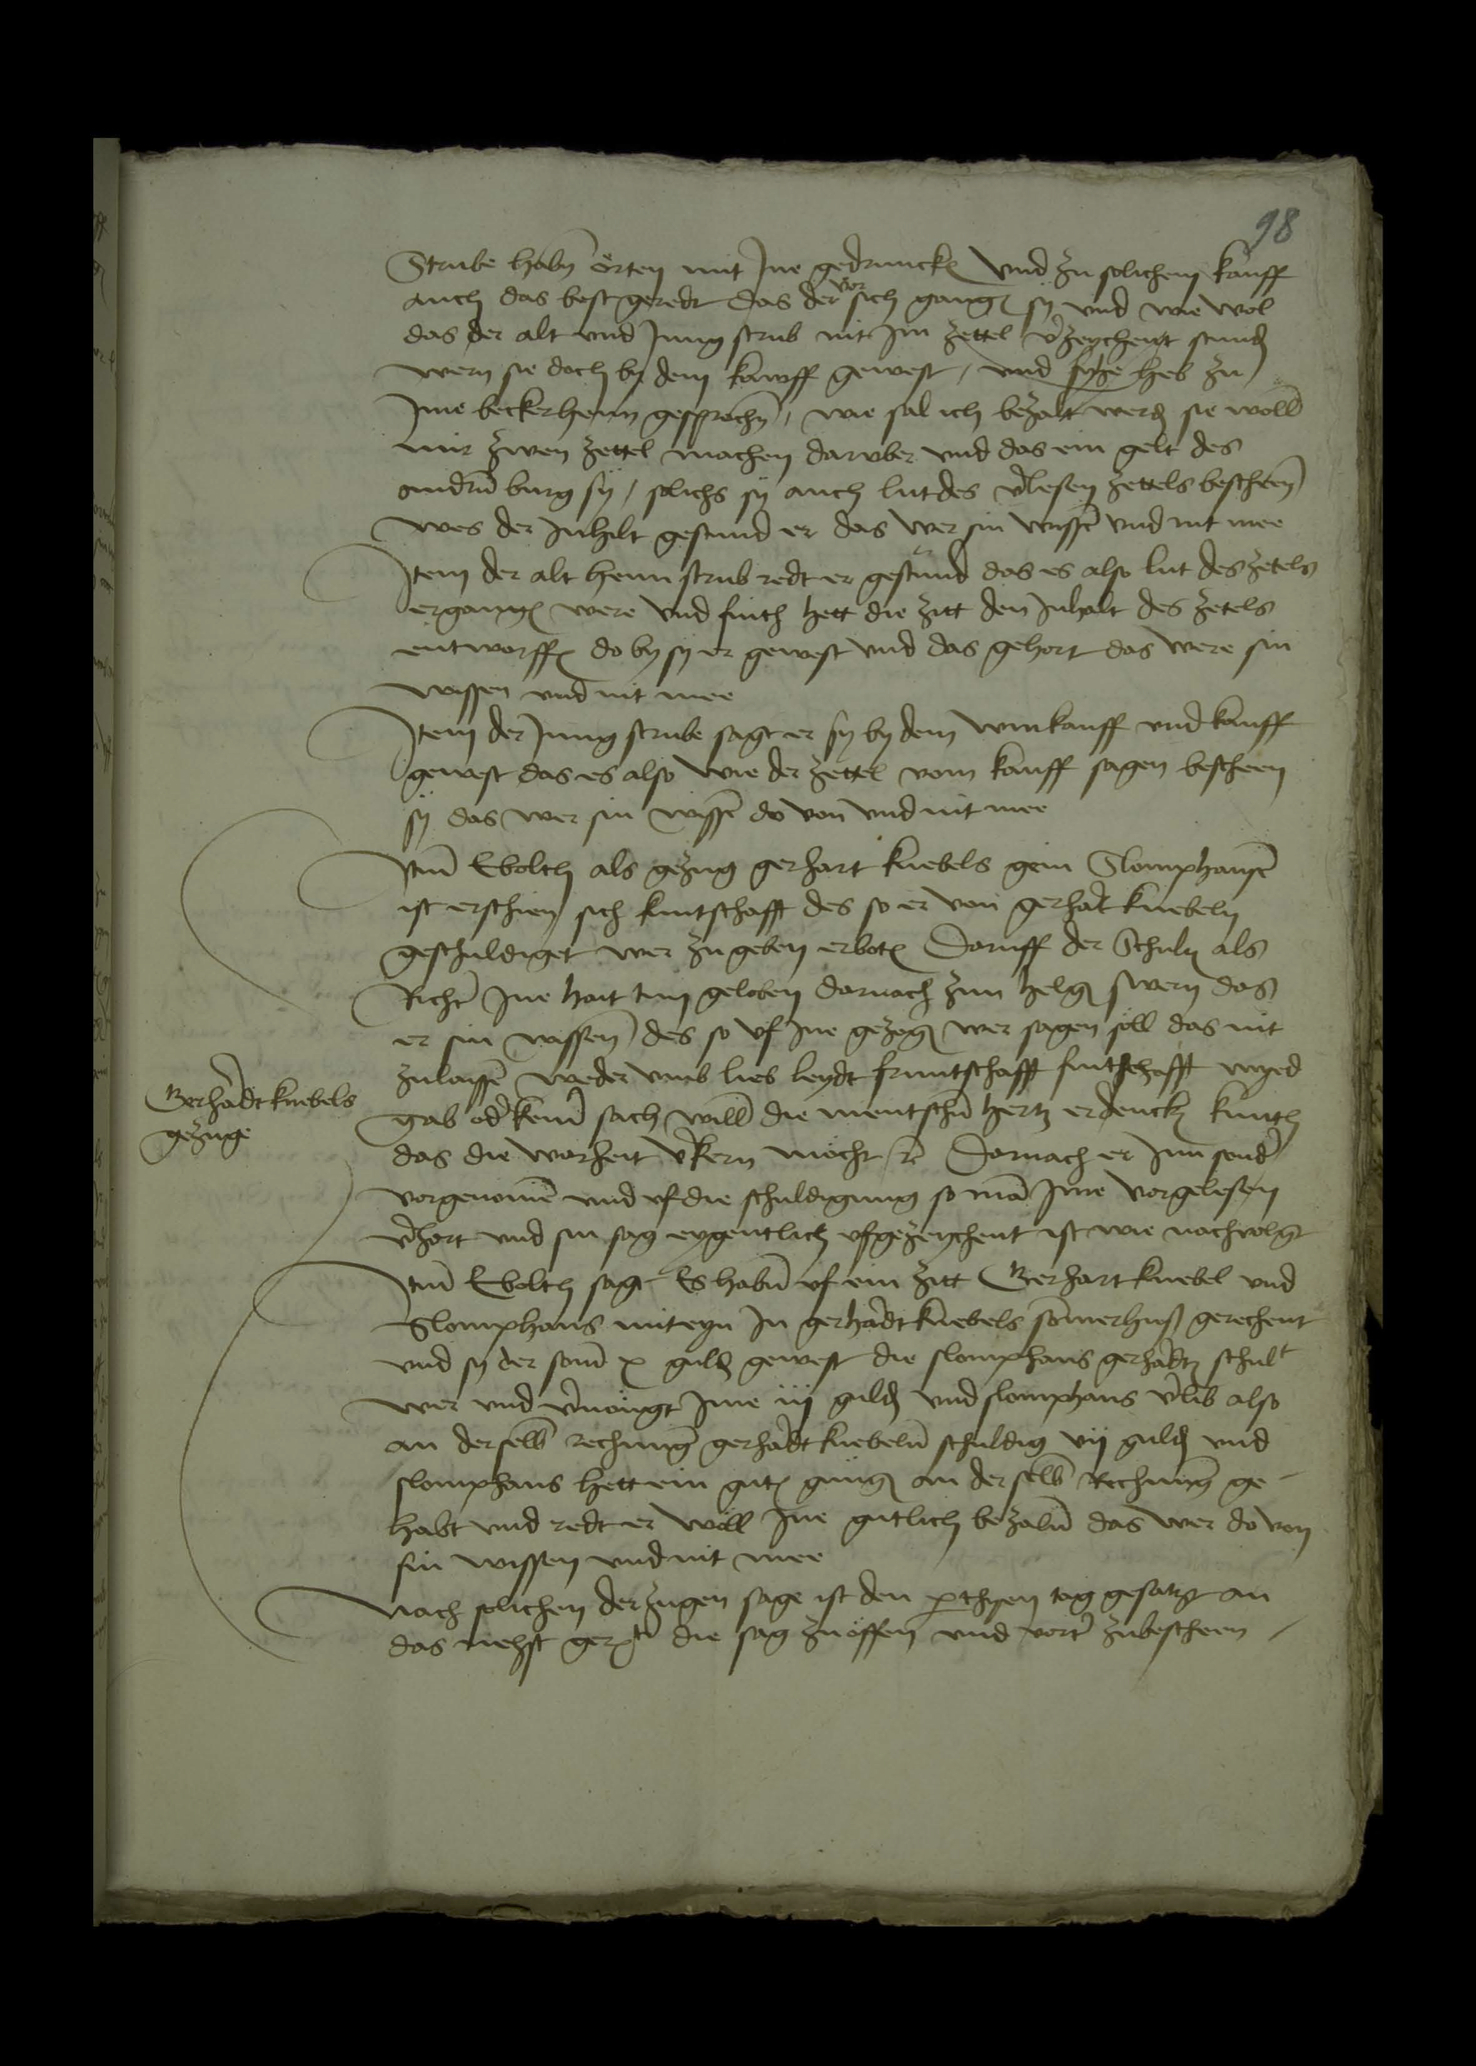 98
Strube habn örten mit Ine gedrunck und zu solichem kauff
auch das best geredt das der vor sich gang sy und wie wol
das der alt und Jung strub nit im zettel v̾zeychent stund
wern sie doch by dem kauff gewest / und hes zu
Ime beckerhenn gesprochn / wie sal ich bezalt werd sie woll
mir zwen zettel machen daruber und das ein gelt des
andrn burg sy / solichs sy auch lut des v̾lesen zettels bescheen
wes der Inhilt gestund er das wer sin wissen und nit mee
Item der alt henn strub redt er gestund das es also lut des zetels
ergang were und hett die zitt den Inhalt des zetels
entworff do by sy er gewest und das gehort das were sin
wissen und nit mee
Item der Jung strube sagt er sy by dem winkauff und kauff
gewest das es also wie der zettel vom kauff sagen bescheen
sy das wer sin wissen do von und nit mee
Itm̄ Ebolch als gezug gerhart knebels gein Slomphansen
ist erschien sich kuntschafft des so er von gerhart knebeln
geschuldiget wer zu geben erbot Daruff der Schult als
Richt̾ Ine hait tun geloben darnach zun helg swern das
er sin wissen des so uf Ine gezog wer sagen söll das nit
zulaissen weder umb lieb leydt fruntschafft fintschafft myed
gab od̾ kein̾ sach will die mentschn hertz erdenck kunth
das die warheit v̾kern möcht rc Darnach er Inn sond̾
vorgenomen und uf die schuldigung so man Ime vorgelesen
v̾hort und sin sag eygentlich ufgezeychent ist wie nachvolgt
Gerhadt knebels
gezuge
Itm̄ Ebolch sagt Es habn uf ein zitt Gerhart knebel und
Slomphans miteyn In gerhadt knebels somerhuß gerechent
und sy der som x guld gewest die slomphans gerhadtz schult
wer und v̾nöugt Ime iij guld und slomphans v̾lib also
an derselb rechnung gerhadt knebeln schuldig vij guld und
slomphans hett ein gut gnüg an der selb Rechnung ge-
habt und redt er wöll Ine gutlich bezaln das wer do von
sin wissen und nit mee
Nach solichen derzugen sage ist den p̱thyen tag gesatzt an
das nehst ger die sag zu öffen und vort̾ zubescheen /